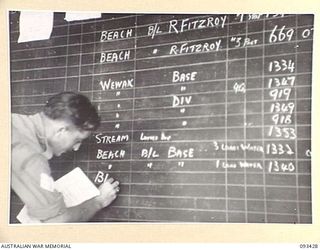 BEACH B/L R FITZROY
BEACH " R FITZROY #3 PORT 669
WEWAK BASE 1334
" " 1347
" DIV 919
" " 1349
" " 918
STREAM 1353
BEACH B/L BASE 3 LOADS WATER 1333
BEACH " " 1 LOAD WATER 1340
B/
AUSTRALIAN WAR MEMORIAL 093428